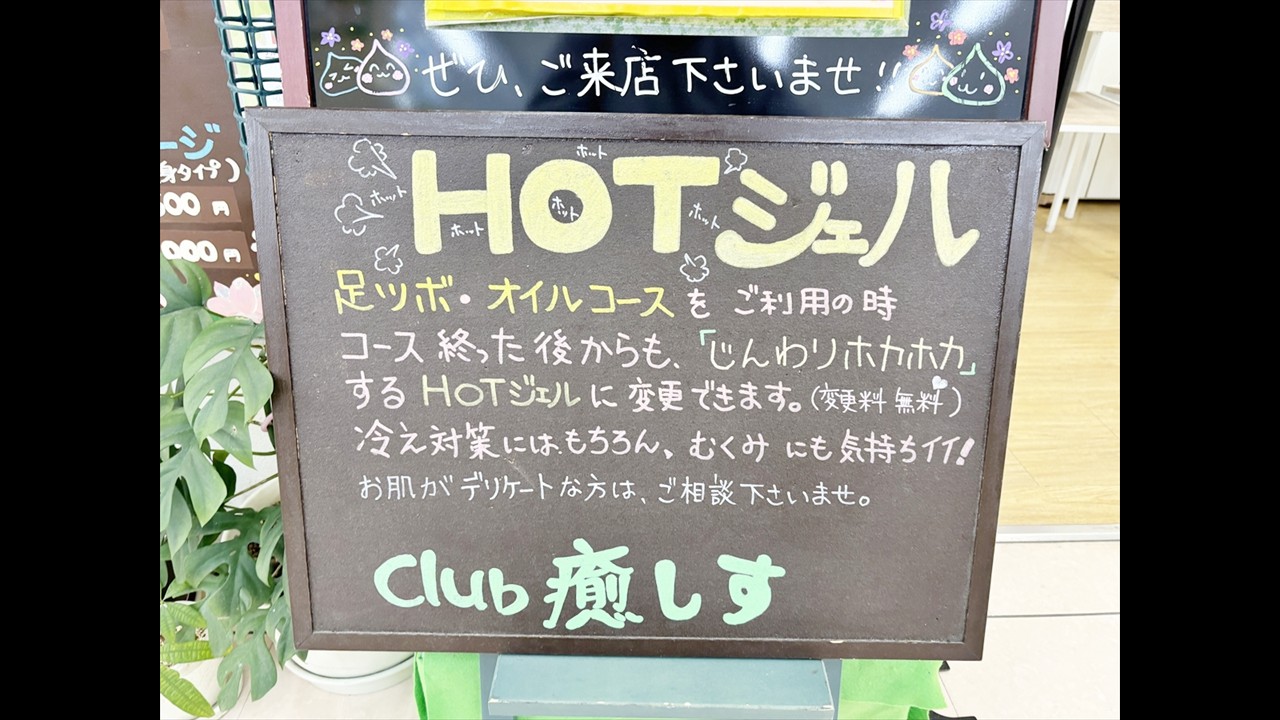 ぜひ、ご来店下さいませ!!
ージ
身タイプ)
00円
000円
HOTジェル
ホット
ホット
ホット
ホット
ホット
足ツボ・オイルコースをご利用の時
コース終った後からも、「じんわりホカホカ」
するHOTジェルに変更できます。(変更料無料)
冷え対策にはもちろん、むくみにも気持ちイイ!
お肌がデリケートな方は、ご相談下さいませ。
Club 癒しす